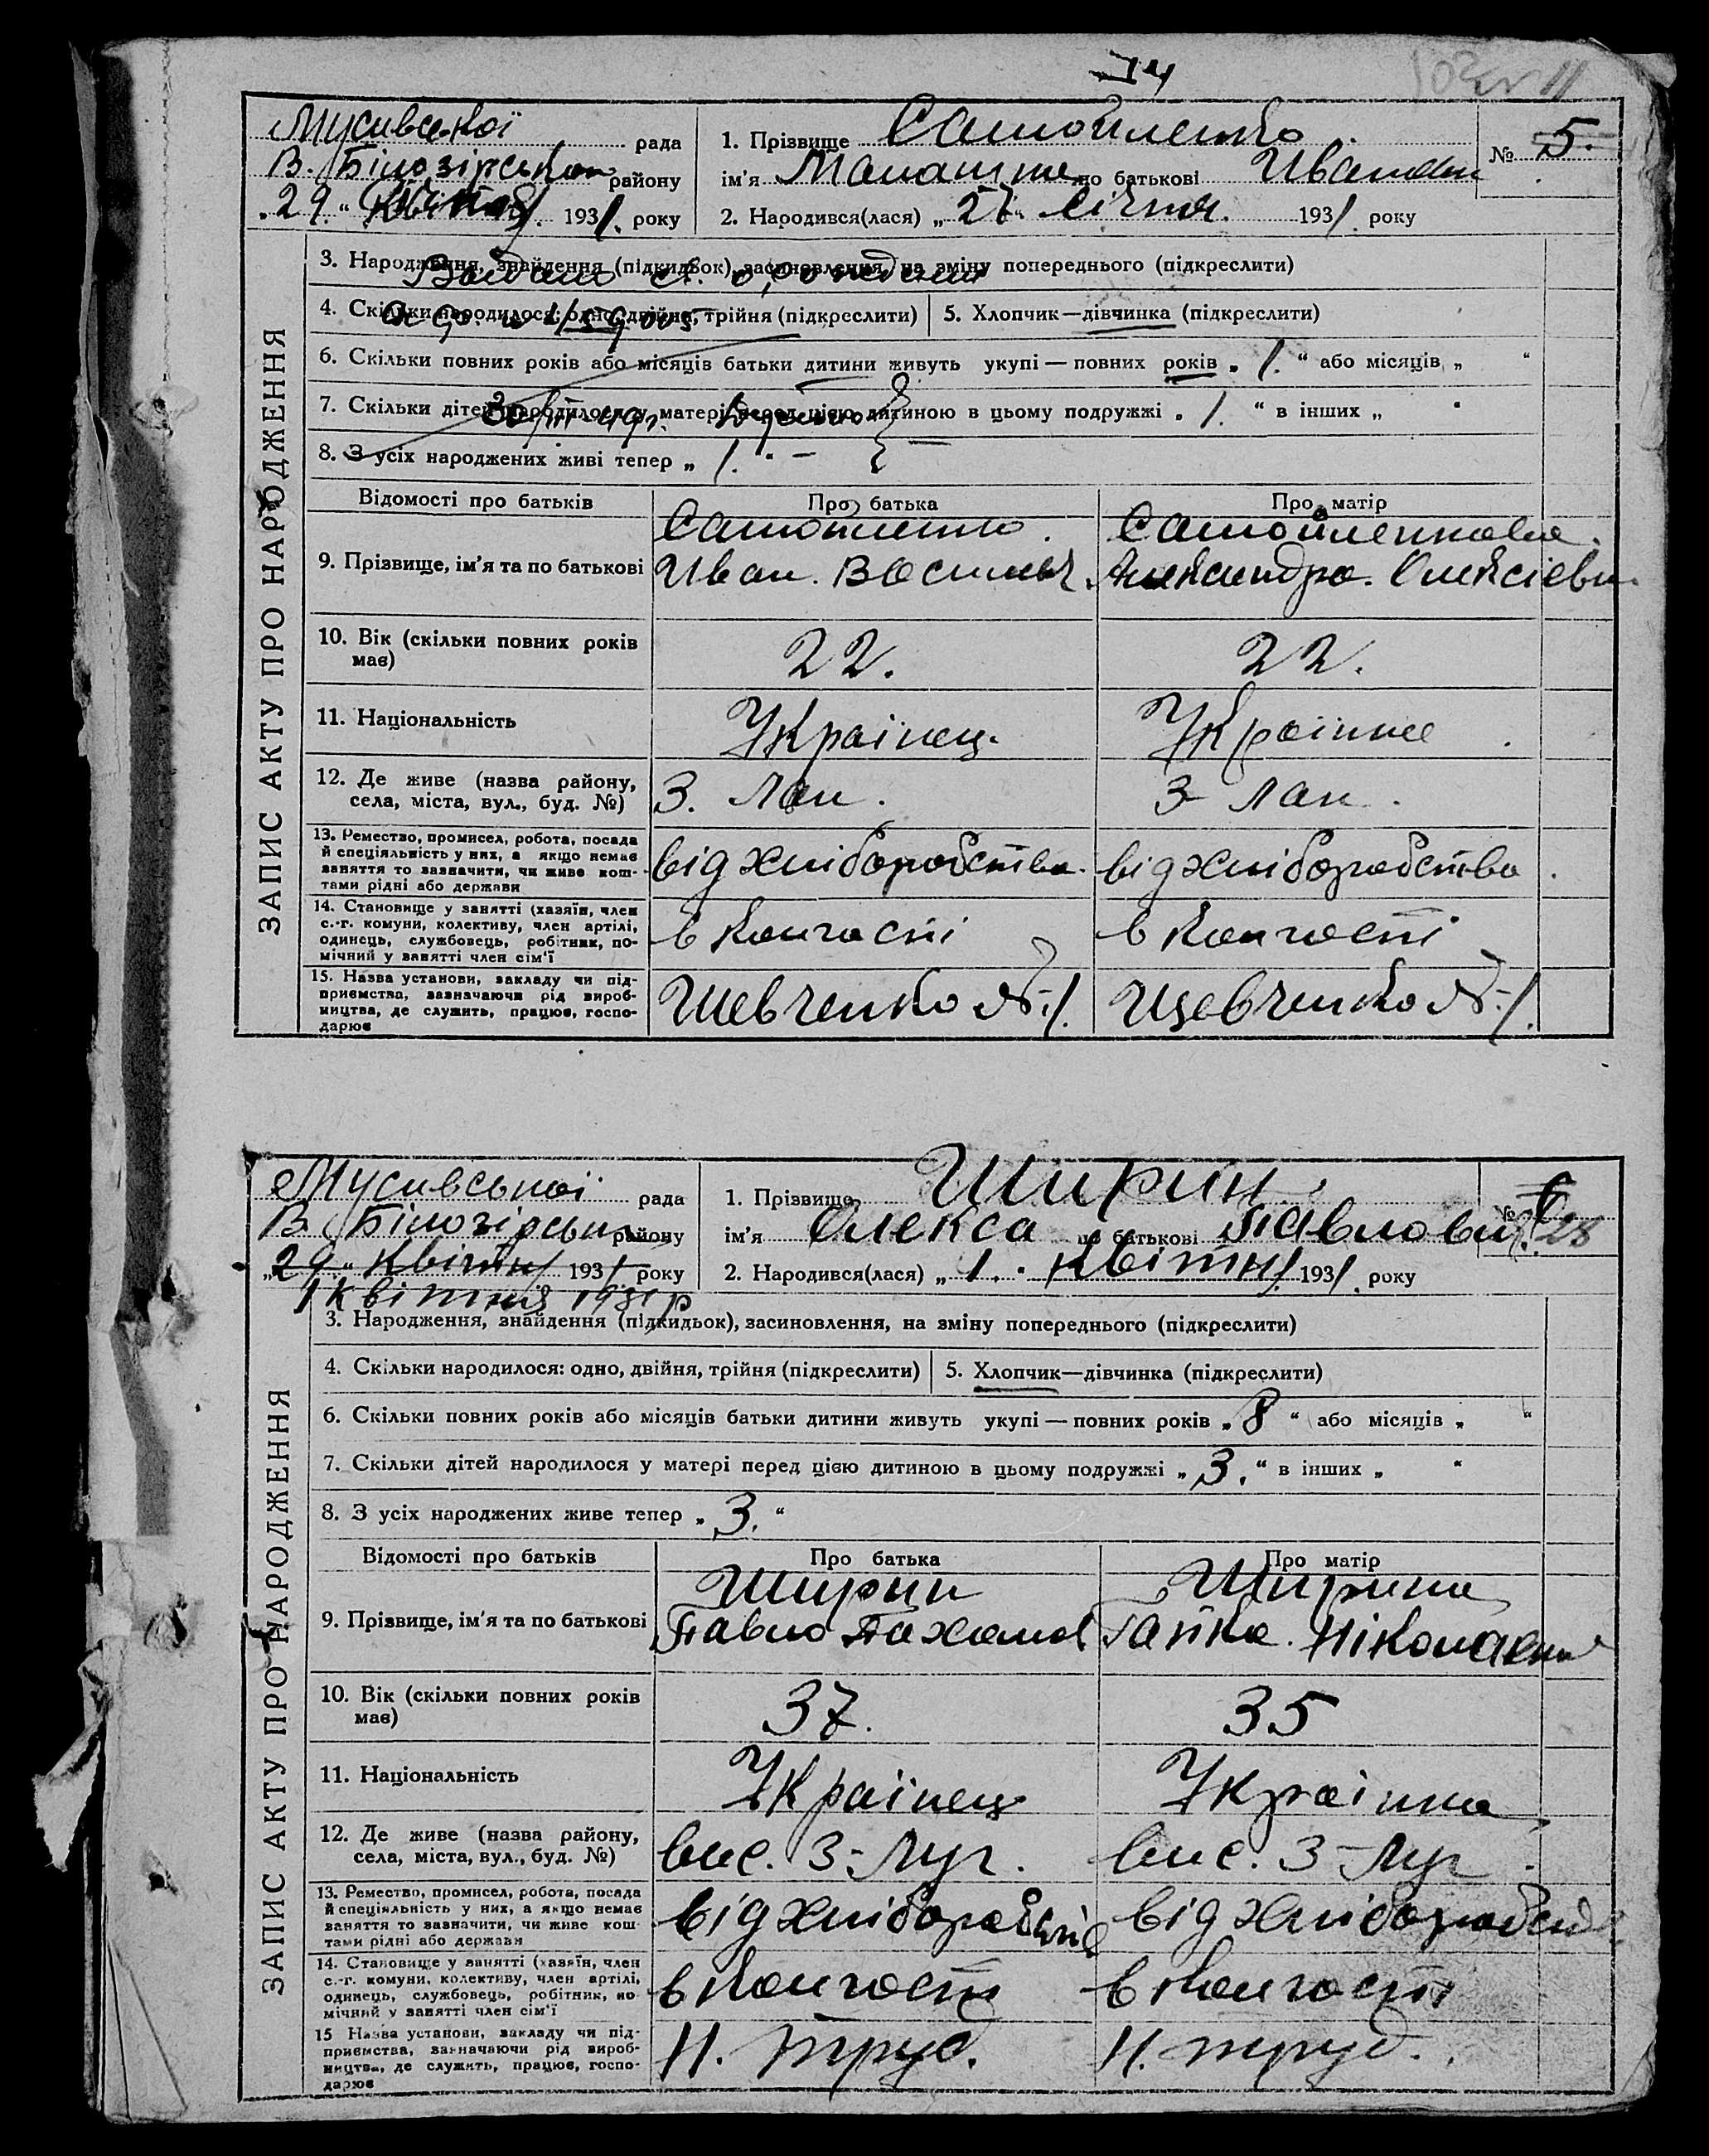 Мусивської рада
В. Білозірського району
„29.“ Квітня 1931. року
1. Прізвище Самойленко
ім'я по батькові Иванівн
№ 5.
2. Народився(лася) „27“ Січня. 1931. року
ЗАПИС АКТУ ПРО НАРОДЖЕННЯ
3. Народження, знайдення (підкидьок), засиновлення, на зміну попереднього (підкреслити)
4. Скільки народилося: одно, двійня, трійня (підкреслити)
5. Хлопчик—дівчинка (підкреслити)
6. Скільки повних років або місяців батьки дитини живуть укупі — повних років „1.“ або місяців „ “
7. Скільки дітей народилося у матері перед цією дитиною в цьому подружжі „1.“ в інших „ “
8. З усіх народжених живі тепер „1.“ –
Відомості про батьків Про батька Про матір
9. Прізвище, ім'я та по батькові
Самойленко.
Иван. Васильев.
Самойленкова.
Александра. Олексієвн.
10. Вік (скільки повних років має)
22.
22.
11. Національність
Українец.
Українка
12. Де живе (назва району, села, міста, вул., буд. №)
З. Лан.
З Лан.
13. Ремество, промисел, робота, посада
й спеціяльність у них, а якщо немає
заняття то зазначити, чи живе кош-
тами рідні або держави
від хліборобства.
від хліборобства.
14. Становище у занятті (хазяїн, член
с.-г. комуни, колективу, член артілі,
одинець, службовець, робітник, по-
мічний у занятті член сім'ї
в колгоспі
в колгоспі
15. Назва установи, закладу чи під-
приємства, зазначаючи рід вироб-
ництва, де служить, працює, госпо-
дарює
Шевченко №1.
Шевченко №1.
Мусивської рада
В. Білозірськ району
„29.“ Квітня 1931 року
1 квітня 1931 р
1. Прізвище Ширин.
ім'я Олекса по батькові Павлович.
№ 28
2. Народився(лася) „1.“ Квітня. 1931. року
ЗАПИС АКТУ ПРО НАРОДЖЕННЯ
3. Народження, знайдення (підкидьок), засиновлення, на зміну попереднього (підкреслити)
4. Скільки народилося: одно, двійня, трійня (підкреслити)
5. Хлопчик—дівчинка (підкреслити)
6. Скільки повних років або місяців батьки дитини живуть укупі — повних років „8“ або місяців „ “
7. Скільки дітей народилося у матері перед цією дитиною в цьому подружжі „3.“ в інших „ “
8. З усіх народжених живе тепер „3.“
Відомості про батьків Про батька Про матір
9. Прізвище, ім'я та по батькові
Ширин
Павло Пахомов
Ширина
Гапка. Ніколаевн
10. Вік (скільки повних років має)
37.
35
11. Національність
Українец
Українка
12. Де живе (назва району, села, міста, вул., буд. №)
вис. З-Луг.
вис. З-Луг.
13. Ремество, промисел, робота, посада
й спеціяльність у них, а якщо немає
заняття то зазначити, чи живе кош-
тами рідні або держави
від хліборобств
від хліборобств
14. Становище у занятті (хазяїн, член
с.-г. комуни, колективу, член артілі,
одинець, службовець, робітник, по-
мічний у занятті член сім'ї
в колгоспі
в колгоспі
15 Назва установи, закладу чи під-
приємства, зазначаючи рід вироб-
ництва, де служить, працює, госпо-
дарює
Н. труд.
Н. труд.